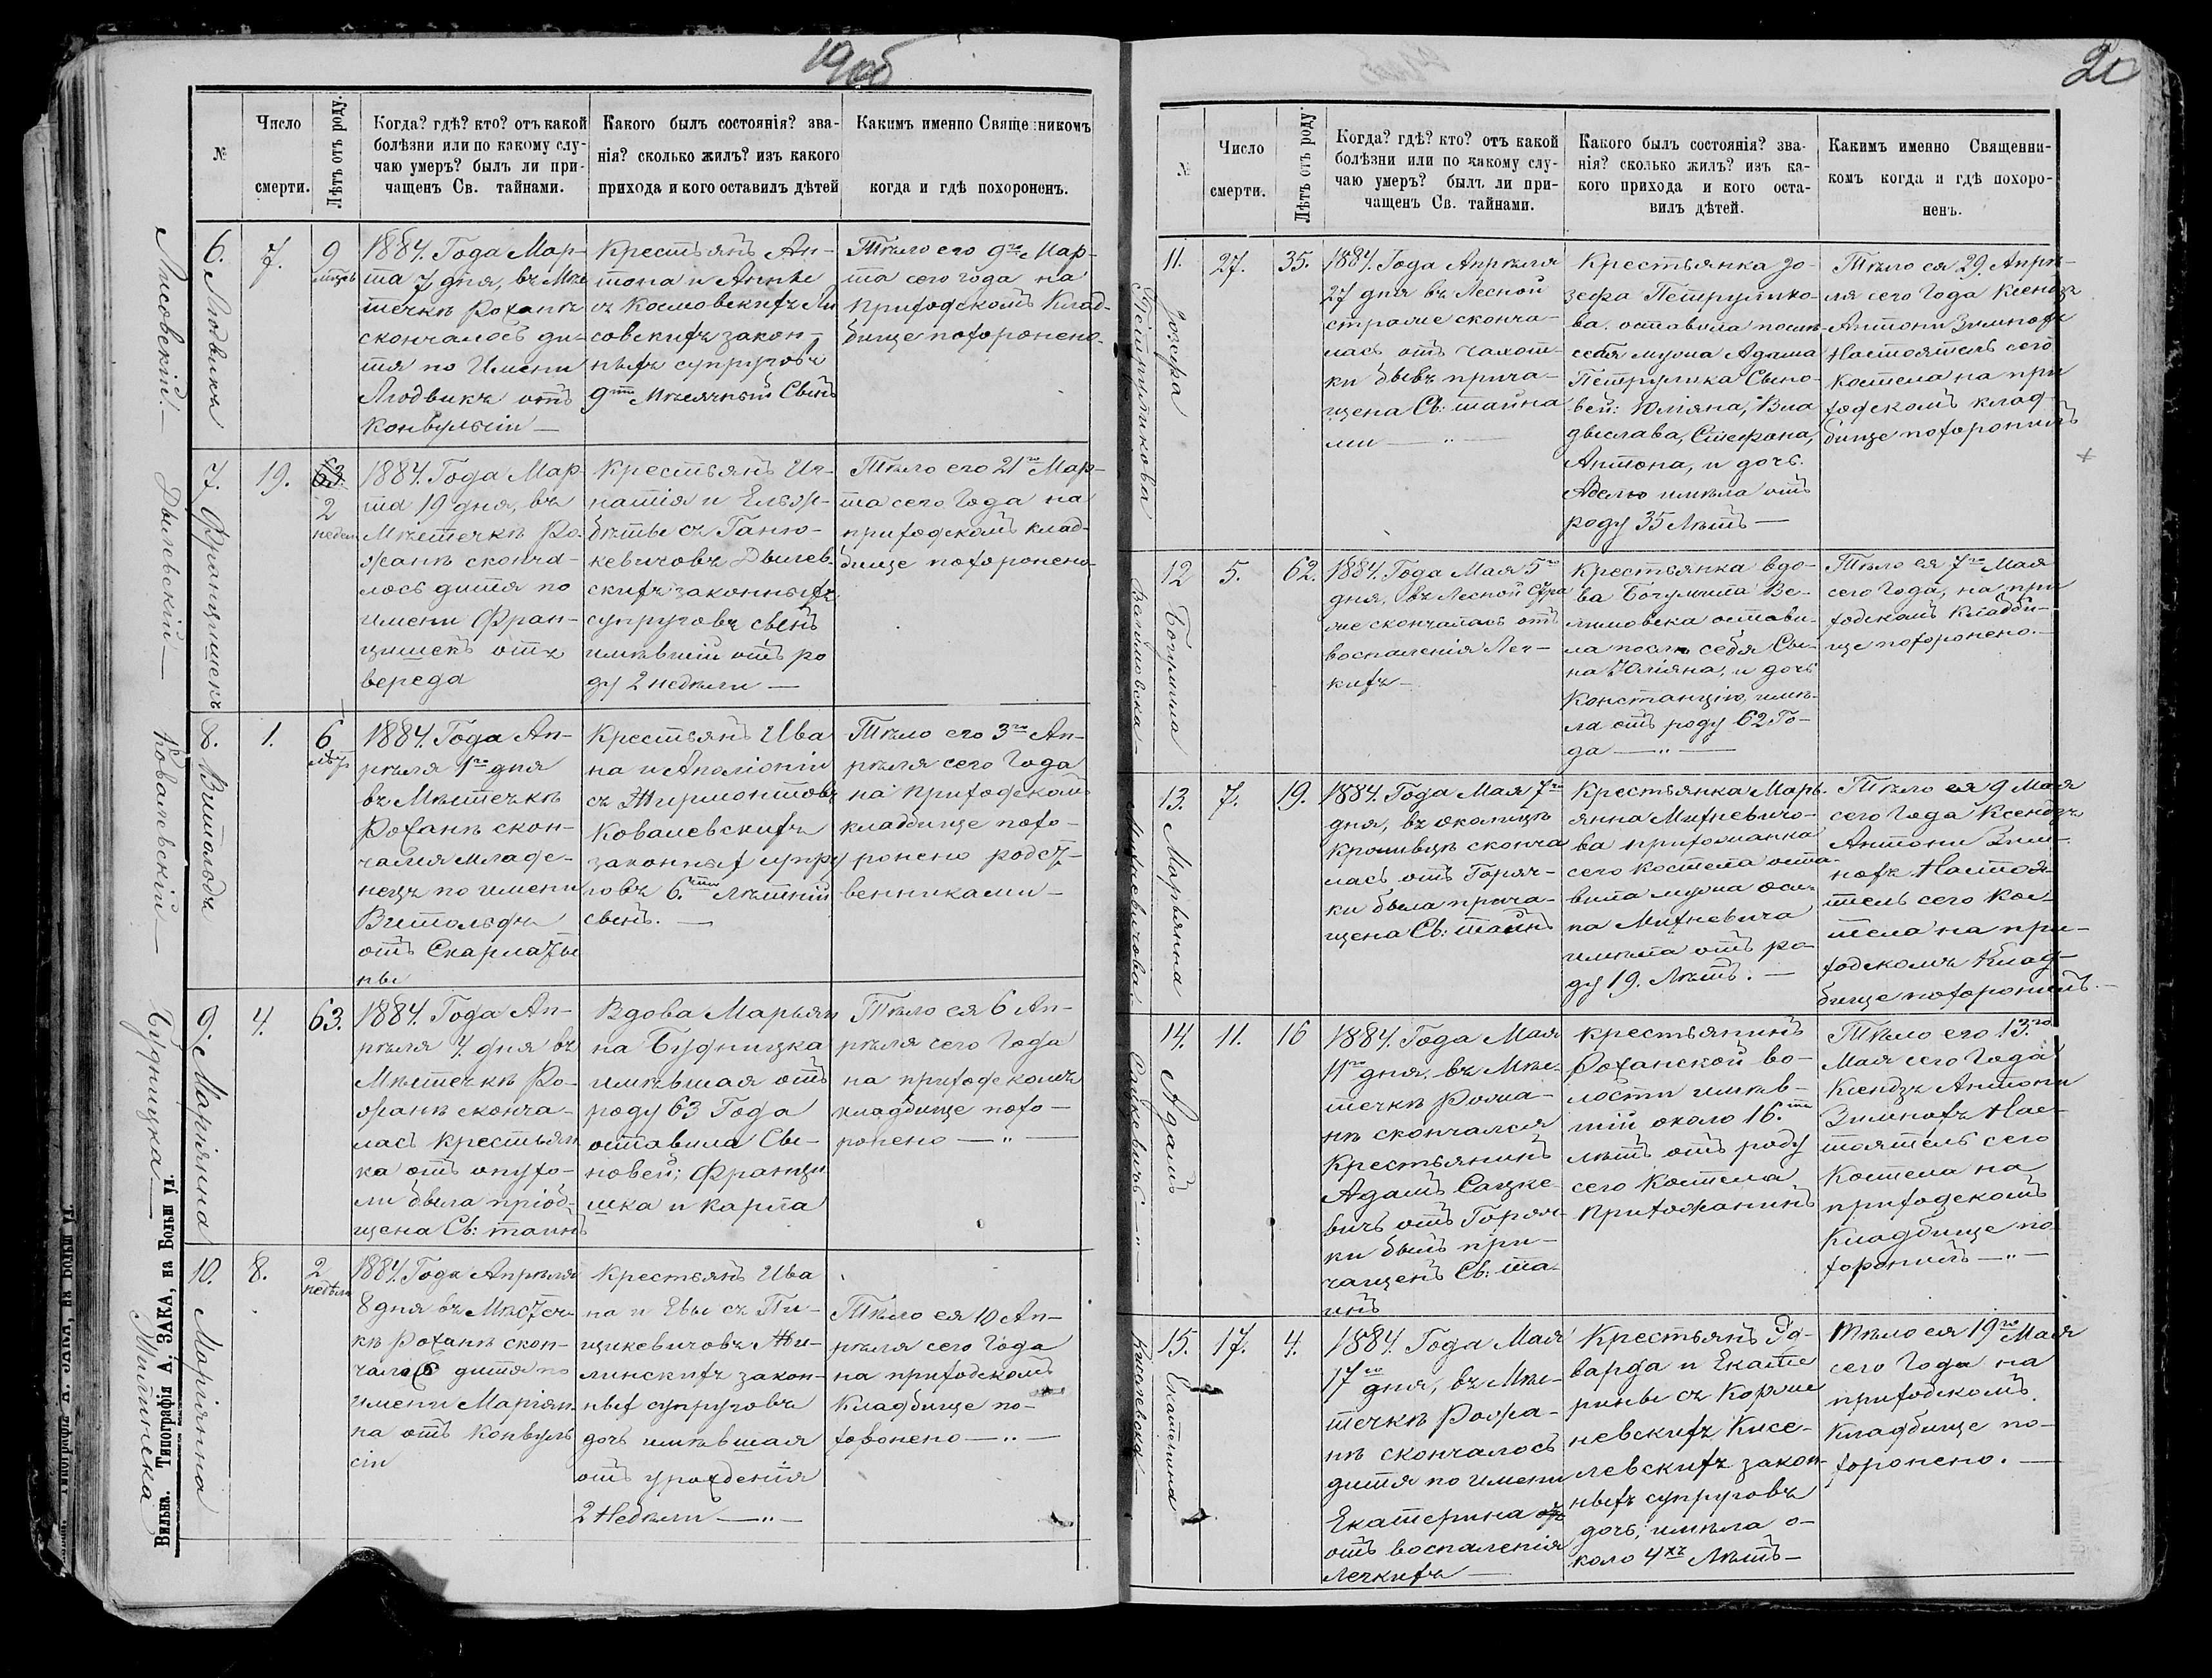 19об
№
Число
смерти.
Лѣтъ отъ роду.
Когда? гдѣ? кто? отъ какой
болѣзни или по какому слу-
чаю умеръ? былъ ли при-
чащенъ Св. тайнами.
Какого былъ состоянія? зва-
нія? сколько жилъ? изъ какого
прихода и кого оставилъ дѣтей
Какимъ именно Священникомъ
когда и гдѣ похороненъ.
6.
Людвикъ
Лисовскій —
7.
9
1884. Года Мар-
та 7 дня, въ Мѣс
течкѣ Роханѣ
скончалось ди-
тя по Имени
Людвикъ отъ
Конвульсіи —
Крестьянъ Ан-
тона и Аннѣ
съ Космовскихъ Ли
совскихъ закон-
ныхъ супруговъ
9ти Мѣсячный Сынъ
Тѣло его 9го Мар-
та сего года на
Приходскомъ Клад-
бище похоронено.
7.
Францишекъ
Дылевскій —
19.
2
недели
1884. Года Мар-
та 19 дня, въ
Мѣстечкѣ Ро-
жанѣ сконча-
лось дитя по
имени Фран-
цишекъ отъ
вереда
Крестьянъ Иг-
натія и Ельжи-
бѣты съ Ганю-
кевичовъ Дылев-
скихъ законныхъ
супруговъ сынъ
имѣвшій отъ ро
ду 2 недѣли —
Тѣло его 21го Мар-
та сего Года на
приходскомъ клад-
бище похоронено
8.
Витольдъ
Ковалевскій —
1.
6
1884. Года Ап-
рѣля 1го дня
въ Мѣстечкѣ
Роханѣ скон-
чался младе-
нецъ по имени
Витольдъ
отъ Скарлаты
ны
Крестьянъ Ива
на и Аполіоніи
съ Жирмонтовъ
Ковалевскихъ
законных супру
говъ 6.ти Лѣтній
сынъ. —
Тѣло его 3го Ап-
рѣля сего Года
на Приходскомъ
кладбище похо-
ронено родст-
венниками —
9.
Маріянна
Будницка —
4.
63.
1884. Года Ап-
рѣля 4. дня въ
Мѣстечкѣ Ро-
жанѣ сконча-
лась крестьян
ка отъ опухо-
ли была пріоб-
щена Св: таинъ
Вдова Марьян
на Будницка
имѣвшая отъ
роду 63 Года
оставила Сы-
новей; Францы
шка и Карла
Тѣло ея 6 Ап-
рѣля сего Года
на приходскомъ
кладбище похо-
ронено — „ —
10.
Маріянна
Жилинска
8.
2
недѣли
1884. Года Апрѣля
8 дня въ Мѣстеч-
кѣ Роханѣ скон-
чалось дитя по
имени Маріян
на отъ Конвуль
сіи
Крестьянъ Ива
на и Евы съ Пи-
щикевичовъ Жи-
линскихъ закон-
ных супруговъ
дочь имѣвшая
отъ урожденія
2 Недѣли — „ —
Тѣло ея 10 Ап-
рѣля сего Года
на приходскомъ
Кладбище по-
хоронено — „ —
Вильна. Типографія А. ЗАКА, на Больш ул.
20
№
Число
смерти.
Лѣтъ отъ роду.
Когда? гдѣ? кто? отъ какой
болѣзни или по какому слу-
чаю умеръ? былъ ли при-
чащенъ Св. тайнами.
Какого былъ состоянія? зва-
нія? сколько жилъ? изъ ка-
кого прихода и кого оста-
вилъ дѣтей.
Какимъ именно Священни-
комъ когда и гдѣ похоро-
ненъ.
11.
Јозефа
Петруликова
27.
35.
1884. Года Апрѣля
27 дня въ Лесной
страже сконча-
лась отъ чахот-
ки бывъ прича-
щена Св: тайна
ми — „ —
Крестьянка Јо-
зефа Петрулико-
ва. оставила послѣ
себя мужа Адама
Петрулика Сыно-
вей: Юліяна, Вла
дыслава, Стефана,
Антона, и дочь.
Аделю имѣла отъ
роду 35 Лѣтъ —
Тѣло ея 29. Апрѣ-
ля сего Года Ксендзъ
Антони Зимнохъ
Настоятель сего
Костела на при
ходскомъ клад-
бище похоронилъ
12
Богумила
5.
62.
1884. Года Мая 5го
дня, въ Лесной Стра
же скончалась отъ
воспаленія Лег-
кихъ —
Крестьянка вдо-
ва Богумила Ве-
лимовска остави-
ла послѣ себя Сы-
на Юліяна, и дочь
Констанцію, имѣ-
ла отъ роду 62 Го-
да — „ —
Тѣло ея 7го Мая
сего Года, на при
ходскомъ Кладби-
ще похоронено. —
13.
Марьянна
Михневичова.
7.
19.
1884. Года Мая 7го
дня, въ околицѣ
Кроливцѣ сконча
лась отъ Горяч-
ки была прича-
щена Св: таинъ
Крестьянка Марь-
янна Михневичо-
ва прихожанка
сего костела оста-
вила мужа Оси-
па Михневича
имѣла отъ ро
ду 19. Лѣтъ. —
Тѣло ея 9 Мая
сего Года Ксендзъ
Антони Зим-
нохъ Настоя-
тель сего Кос-
тела на при-
ходскомъ Клад-
бище похоронилъ. —
14.
Адамъ
Сацкевичъ — „ —
11.
16
1884. Года Мая
11го дня. въ Мѣс-
течкѣ Рожа-
нѣ скончался
Крестьянинъ
Адамъ Сацке-
вичъ отъ Горяч-
ки былъ при-
чащенъ Св: та-
инъ
Крестьянинъ
Роханской во-
лости имѣв-
шій около 16.ти
лѣтъ отъ роду
сего Костела
Прихожанинъ
Тѣло его 13.го
Мая сего Года
Ксендзъ Антони
Зимнохъ Нас-
тоятель сего
Костела на
приходскомъ
Кладбище по-
хоронилъ — „ —
15.
Екатерина
Киселевска —
17.
4.
1884. Года Мая
17го дня, въ Мѣс-
течкѣ Рожа-
нѣ скончалось
дитя по имени
Екатерина
отъ воспаленія
Легкихъ —
Крестьянъ Эд-
варда и Екате
рины съ Корже
невскихъ Кисе-
левскихъ закон-
ныхъ супруговъ
дочь, имѣла о-
коло 4хъ Лѣтъ —
Тѣло ея 19го Мая
сего Года на
приходскомъ.
Кладбище по-
хоронено. —